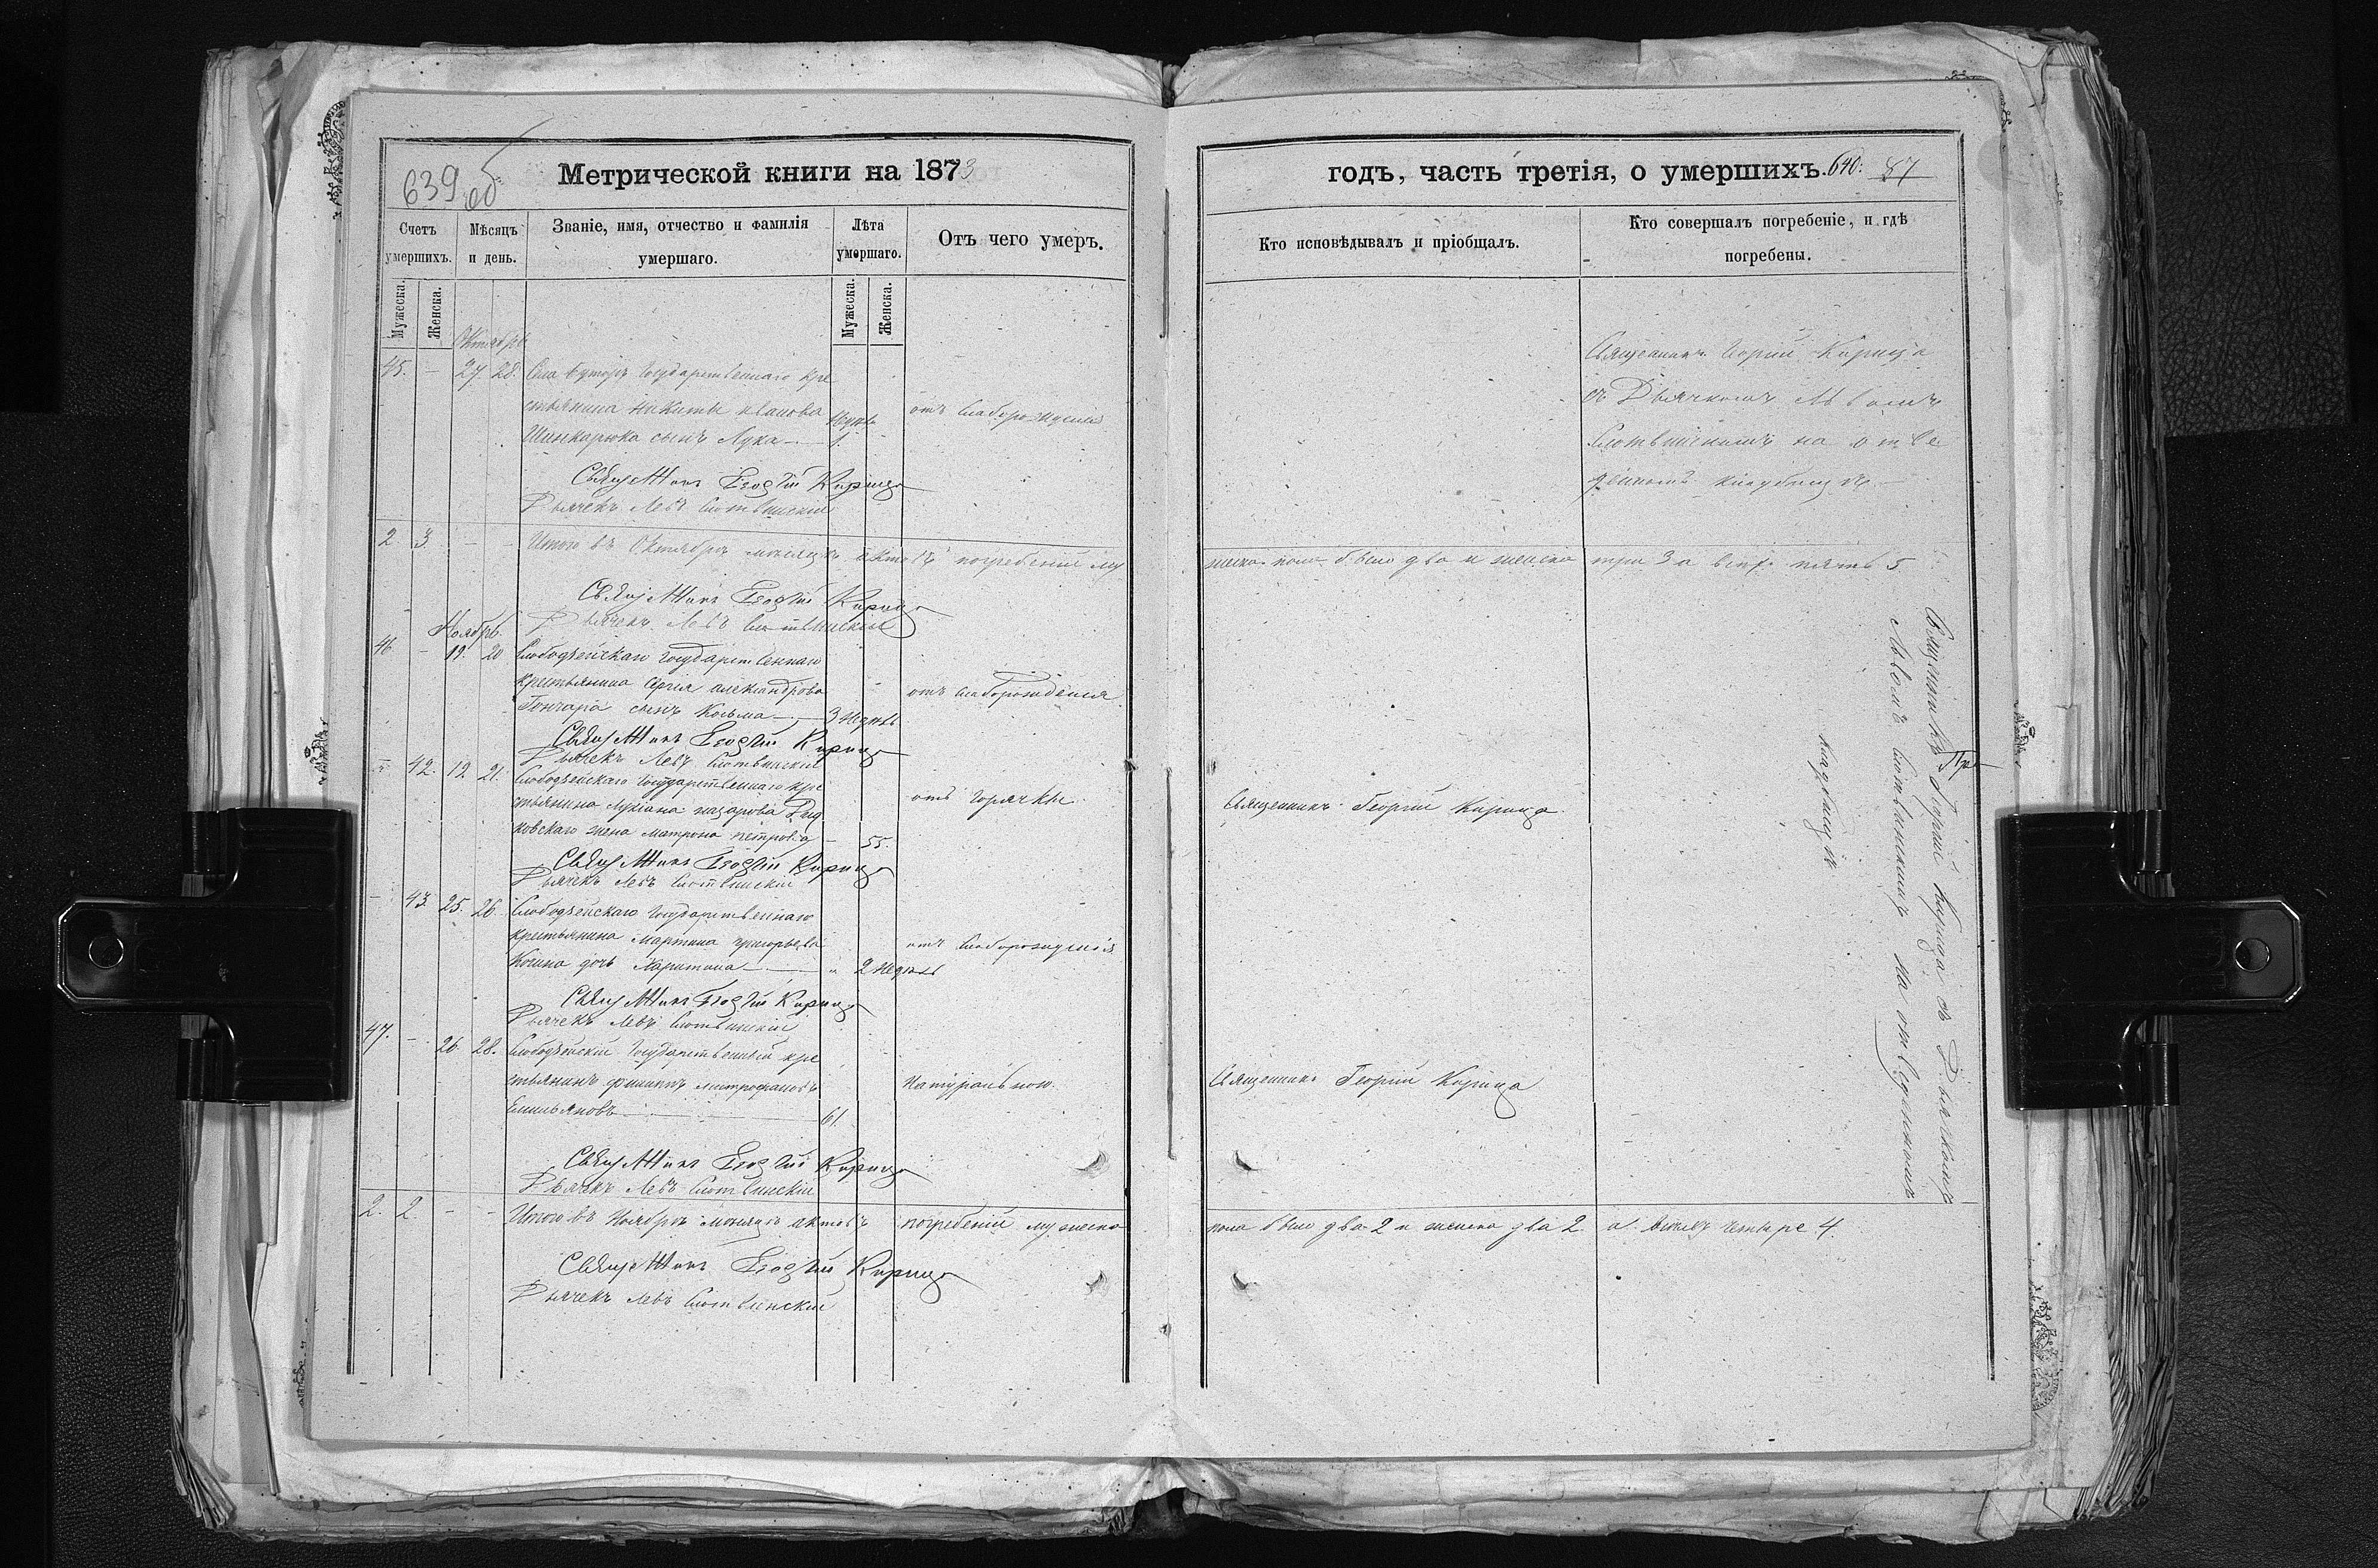 639 об
Метрической книги на 1873
Счетъ умершихъ.
Мѣсяцъ и день.
Званіе, имя, отчество и фамилія умершаго.
Лѣта умершаго.
Отъ чего умеръ.
Мужеска.
Женска.
Мужеска.
Женска.
Октябрь
45. — 27. 28. Села Буторъ Государственнаго кре
стьянина Никиты Иванова
Шинкарюка сынъ Лука — 1.
отъ слаборождения
Священникъ Георгій Кирица
Дьячекъ Левъ Слотвинскій
2. 3. — — Итого въ Октябрѣ мѣсяцѣ актовъ погребеній му
Священникъ Георгій Кирица
Дьячекъ Левъ Слотвинскій
Ноябрь.
46 — 19. 20 Слободзейскаго Государственнаго
крестьянина Сергія Александрова
Гончара сынъ Козьма — 3 недѣли
отъ слаборождения
Священникъ Георгій Кирица
Дьячекъ Левъ Слотвинскій
— 42. 19. 21. Слободзейскаго Государственнаго кре
стьянина Лукіана Назарова
ковскаго жена Матрона Петрова — 55.
отъ горячки
Священникъ Георгій Кирица
Дьячекъ Левъ Слотвинскій
— 43. 25. 26. Слободзейскаго Государственнаго
крестьянина Мартина Григорьева
дочь Харитина — 2 недѣли
отъ слаборождения
Священникъ Георгій Кирица
Дьячекъ Левъ Слотвинскій
47. — 26. 28. Слободзейскій Государственный кре
стьянинъ Филиппъ Митрофановъ
Емельяновъ — 61.
натуральною.
Священникъ Георгій Кирица
Дьячекъ Левъ Слотвинскій
2. 2. — — Итого въ Ноябрѣ мѣсяцѣ актовъ погребеній мужеска
Священникъ Георгій Кирица
Дьячекъ Левъ Слотвинскій
годъ, часть третія, о умершихъ. 640. 87
Кто исповѣдывалъ и пріобщалъ.
Кто совершалъ погребеніе, и гдѣ погребены.
Священникъ Георгій Кирица
съ Дьячкомъ Львомъ
Слотвинскимъ на отве
денномъ кладбищѣ
жеска пола было два и женска три 3 а всѣхъ пять 5
Священникъ Георгій Кирица
Священникъ Георгій Кирица
Священникъ Георгій Кирица съ Дьячкомъ
Львомъ Слотвинскимъ на отведенномъ
кладбищѣ
пола было два 2 и женска два 2. а всѣхъ четыре 4.